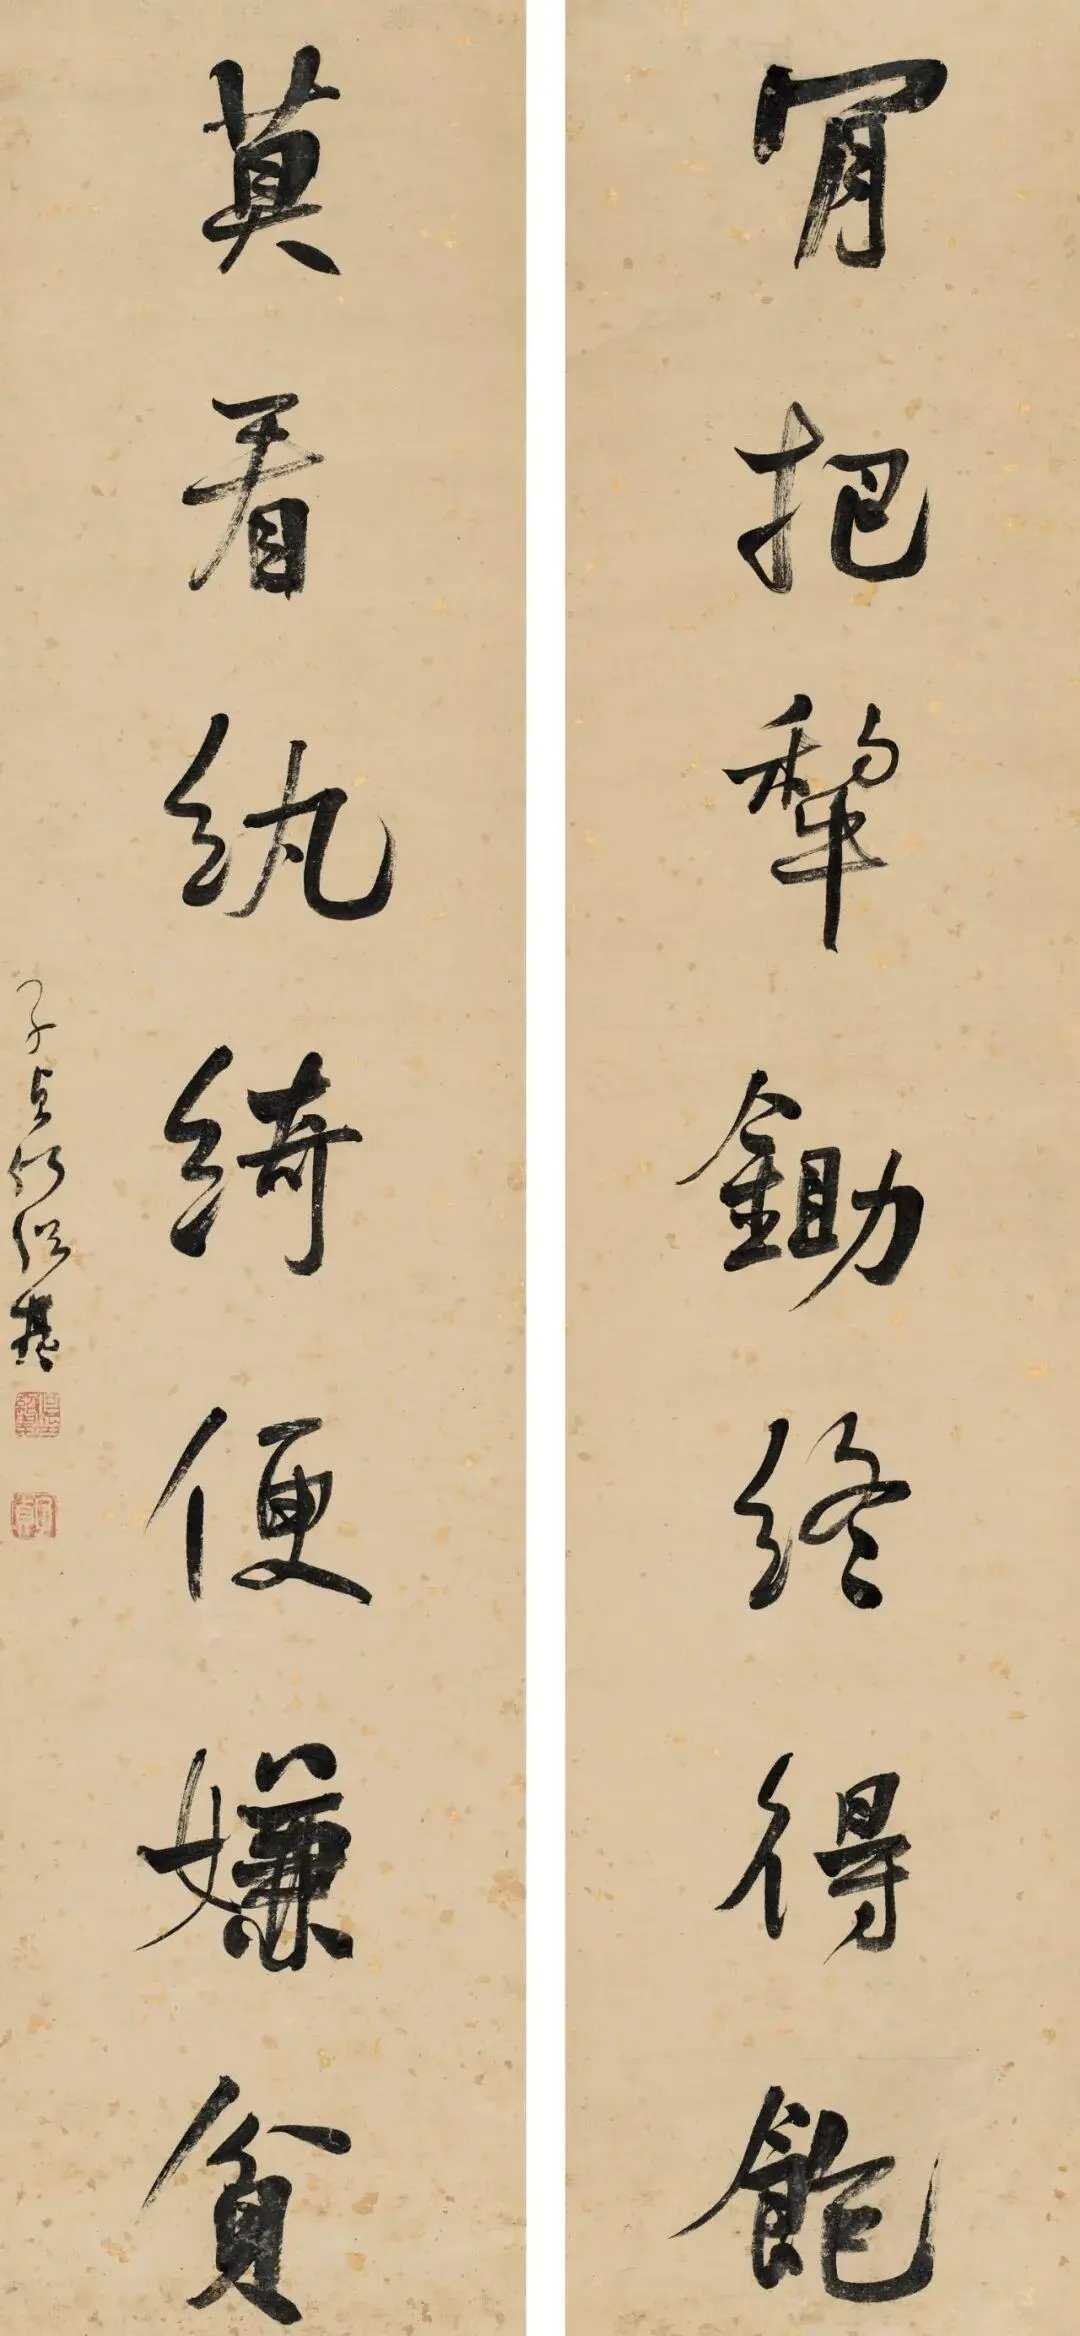 肎把犂鋤終得飽
莫看紈綺便嫌貧
子貞何紹基
子貞